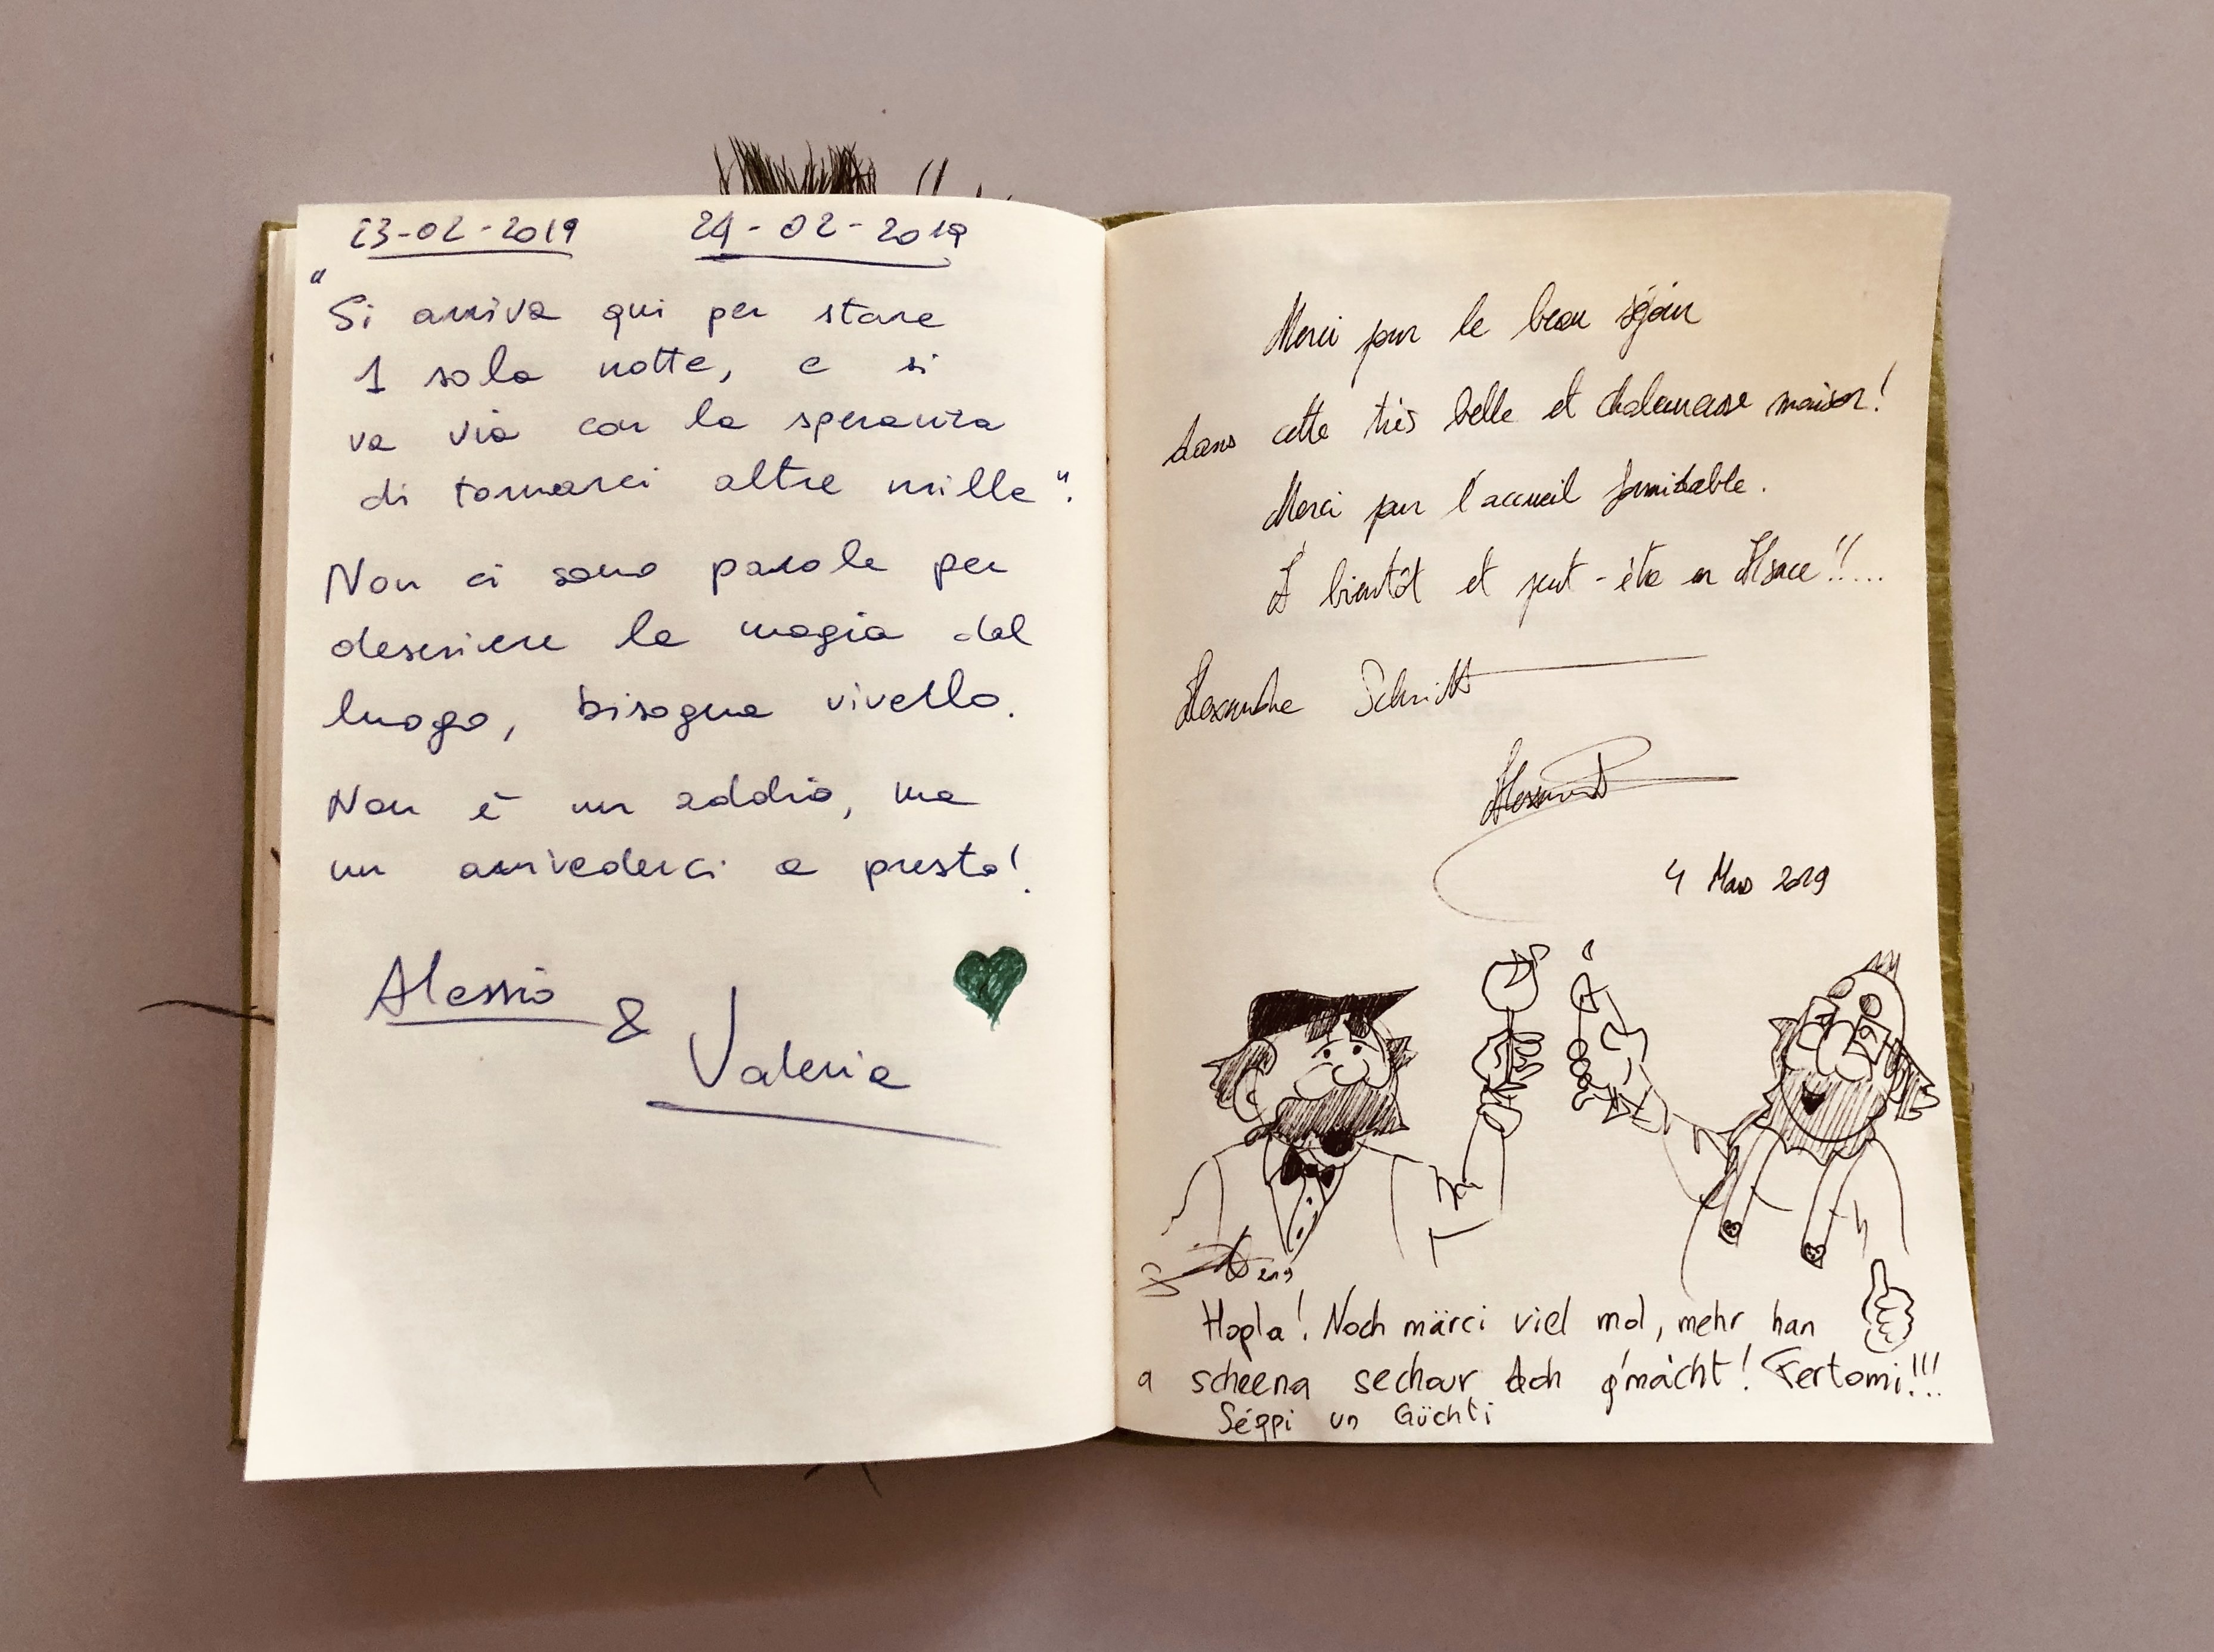 23-02-2019 24-02-2019
"Si arriva qui per stare
1 sola notte, e si
va via con la speranza
di tornarci altre mille".
Non ci sono parole per
descrivere la magia del
luogo, bisogna viverlo.
Non è un addio, ma
un arrivederci a presto!
Alessio
&
Valeria
Merci pour le beau séjour
dans cette très belle et chaleureuse maison!
Merci pour l'accueil formidable.
À bientôt et peut-être en Alsace!!...
Alexandre Schmitt
4 Mars 2019
Hopla! Noch märci viel mol, mehr han
a scheena sechour doh g'màcht! Fertomi!!!
Séppi un Güchti